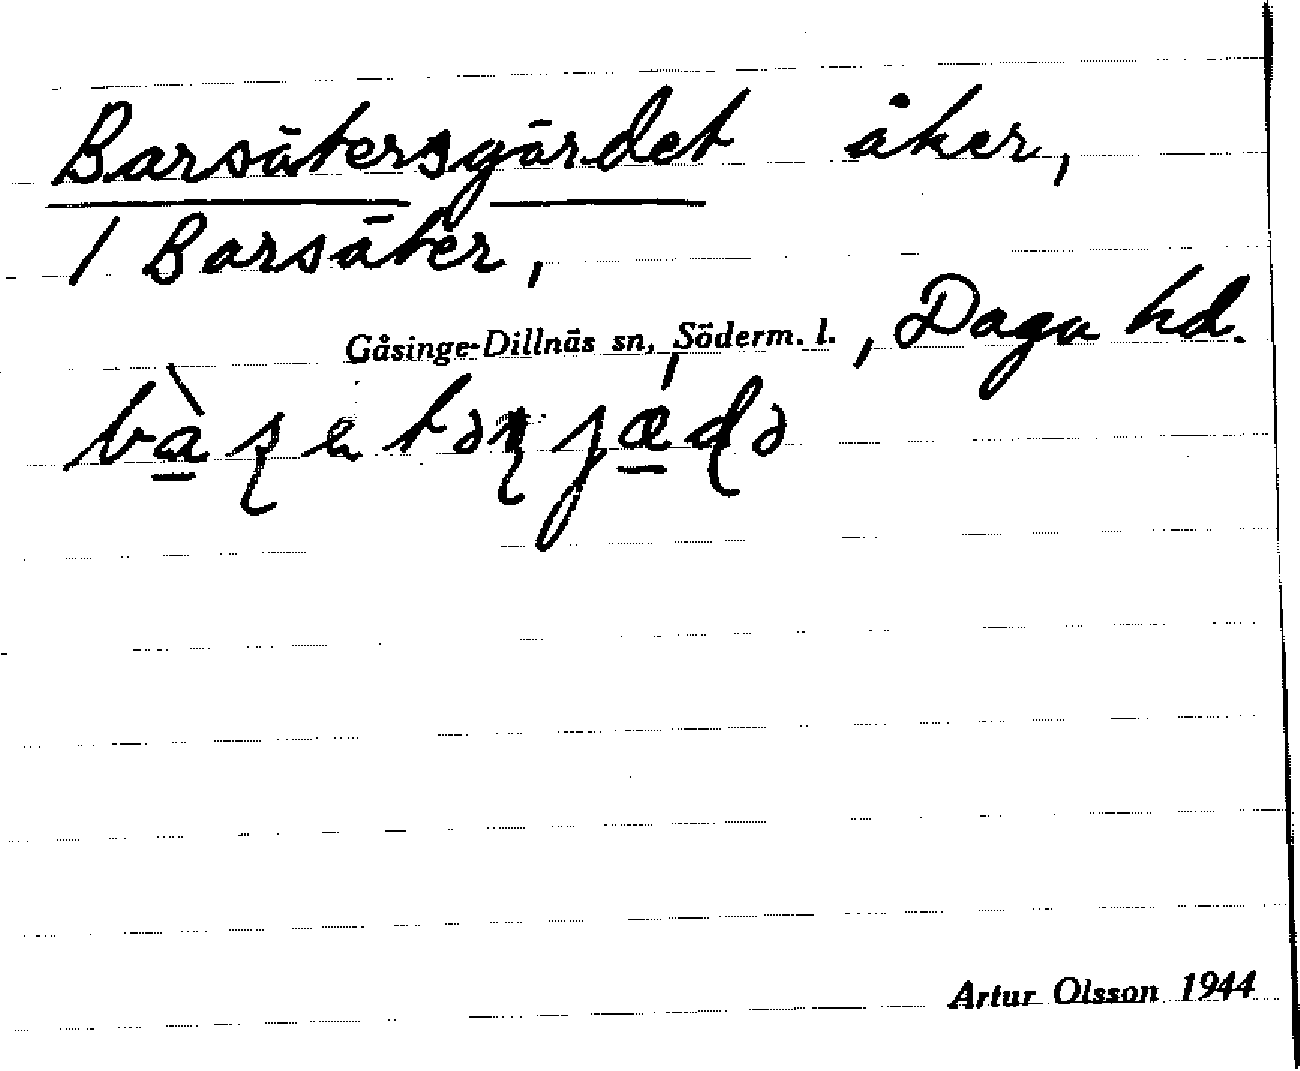 Barsätersgärdet åker,
/ Barsäter,
Gåsinge-Dillnäs sn, Söderm. l., Daga hd.
Artur Olsson 1944